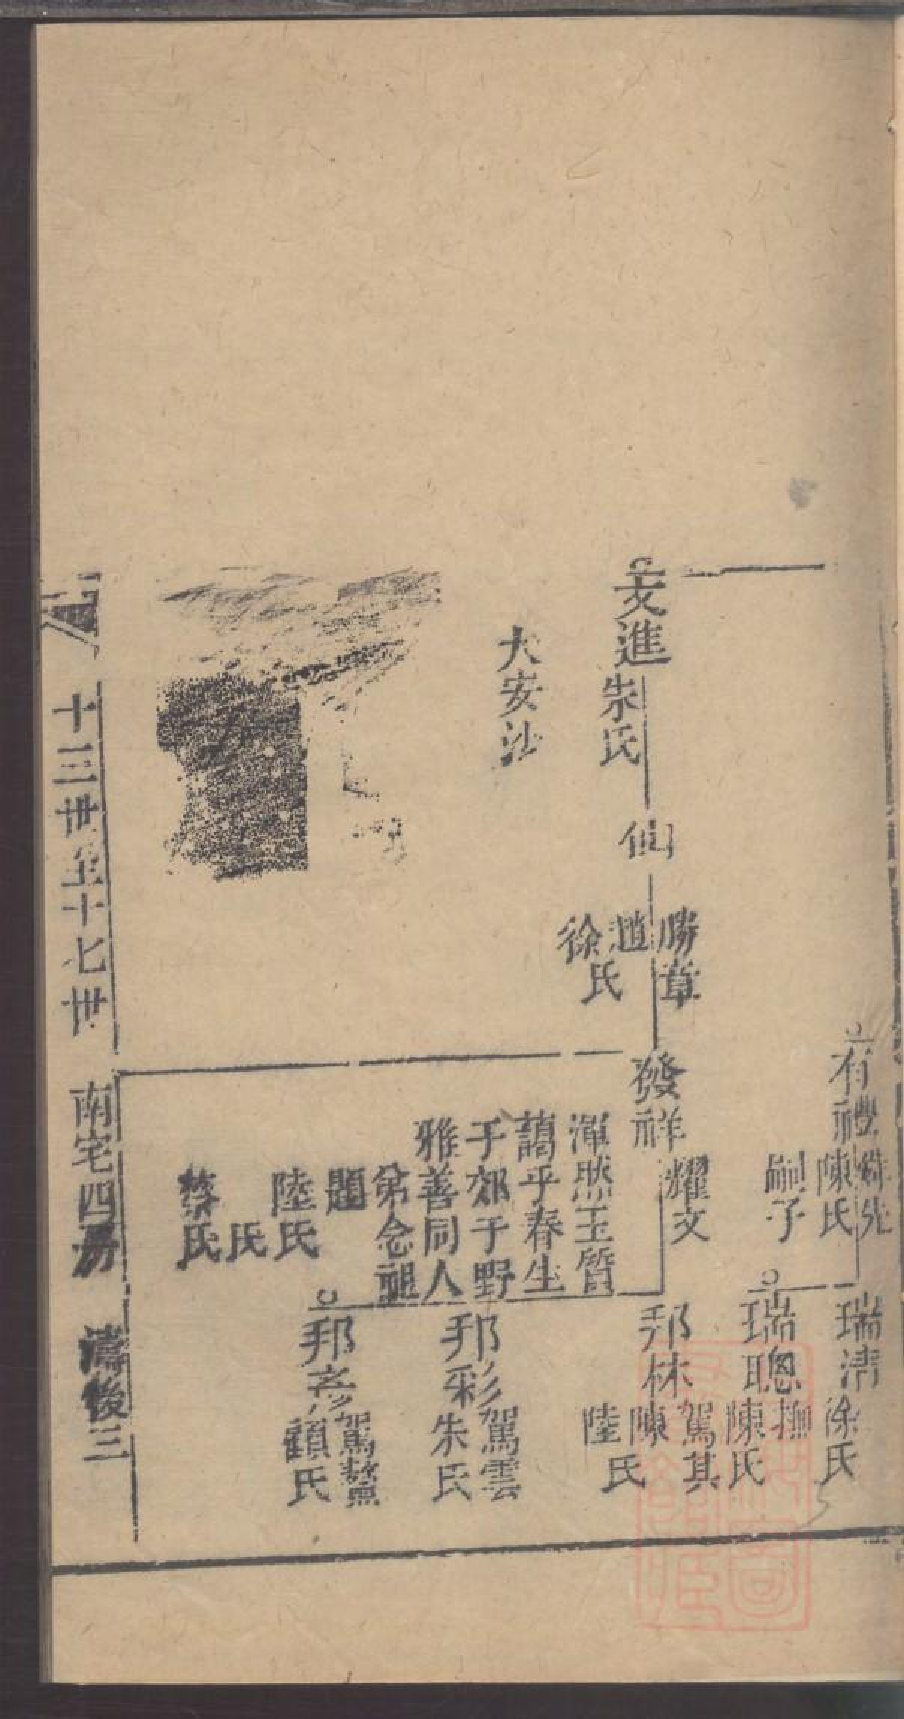 有禮
陳氏
嗣子
瑞清
徐氏
瑞聰
撫
陳氏
文進
朱氏
仙
勝章
趙
徐氏
發祥
耀文
渾然玉質
藹乎春生
于郊于野
雅善同人
弟念祖
題
陸氏
氏
蔡氏
邦林
駕其
陳
陸氏
邦彩
駕雲
朱氏
邦彥
駕鰲
顧氏
大安沙
十三世至十七世
南宅四房
濤後三